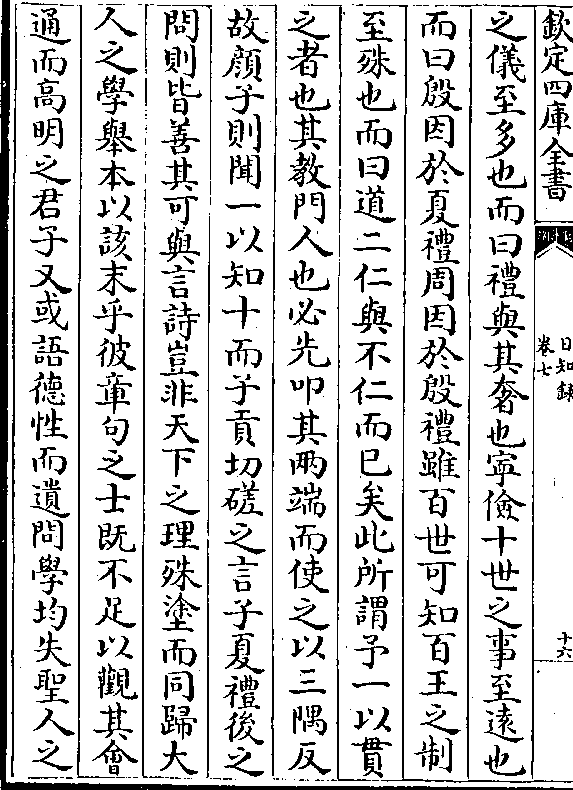 欽定四庫全書
日知錄
卷七
十六
之儀至多也而曰禮與其奢也寧儉十世之事至逺也
而曰殷因於夏禮周因於殷禮雖百世可知百王之制
至殊也而曰道二仁與不仁而已矣此所謂予一以貫
之者也其教門人也必先叩其兩端而使之以三隅反
故顔子則聞一以知十而子貢切磋之言子夏禮後之
問則皆善其可與言詩豈非天下之理殊塗而同歸大
人之學舉本以該末乎彼章句之士既不足以觀其會
通而高明之君子又或語德性而遺問學均失聖人之